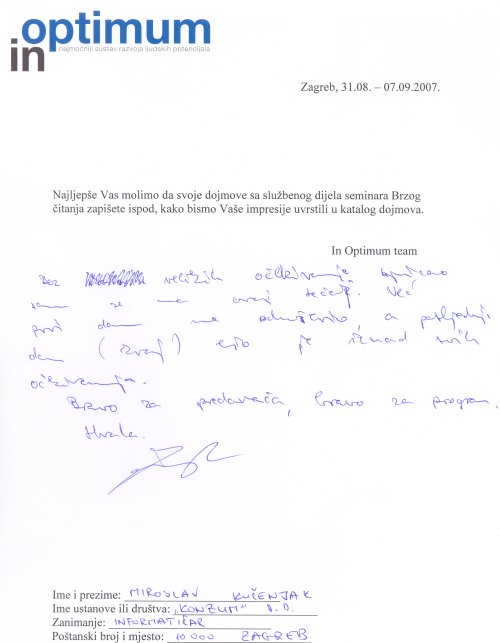 in optimum
najmoćniji sustav razvoja ljudskih potencijala
Zagreb, 31.08. – 07.09.2007.
Najljepše Vas molimo da svoje dojmove sa službenog dijela seminara Brzog
čitanja zapišete ispod, kako bismo Vaše impresije uvrstili u katalog dojmova.
In Optimum team
Bez velikih očekivanja upisao
sam se na ovaj tečaj. Već
prvi dan me oduševio, a posljednji
dan (ovaj) bio je iznad svih
očekivanja.
Bravo za predavača, bravo za program.
Hvala.
Ime i prezime: MIROSLAV KUČENJAK
Ime ustanove ili društva: „KONZUM" D.D.
Zanimanje: INFORMATIČAR
Poštanski broj i mjesto: 10 000 ZAGREB